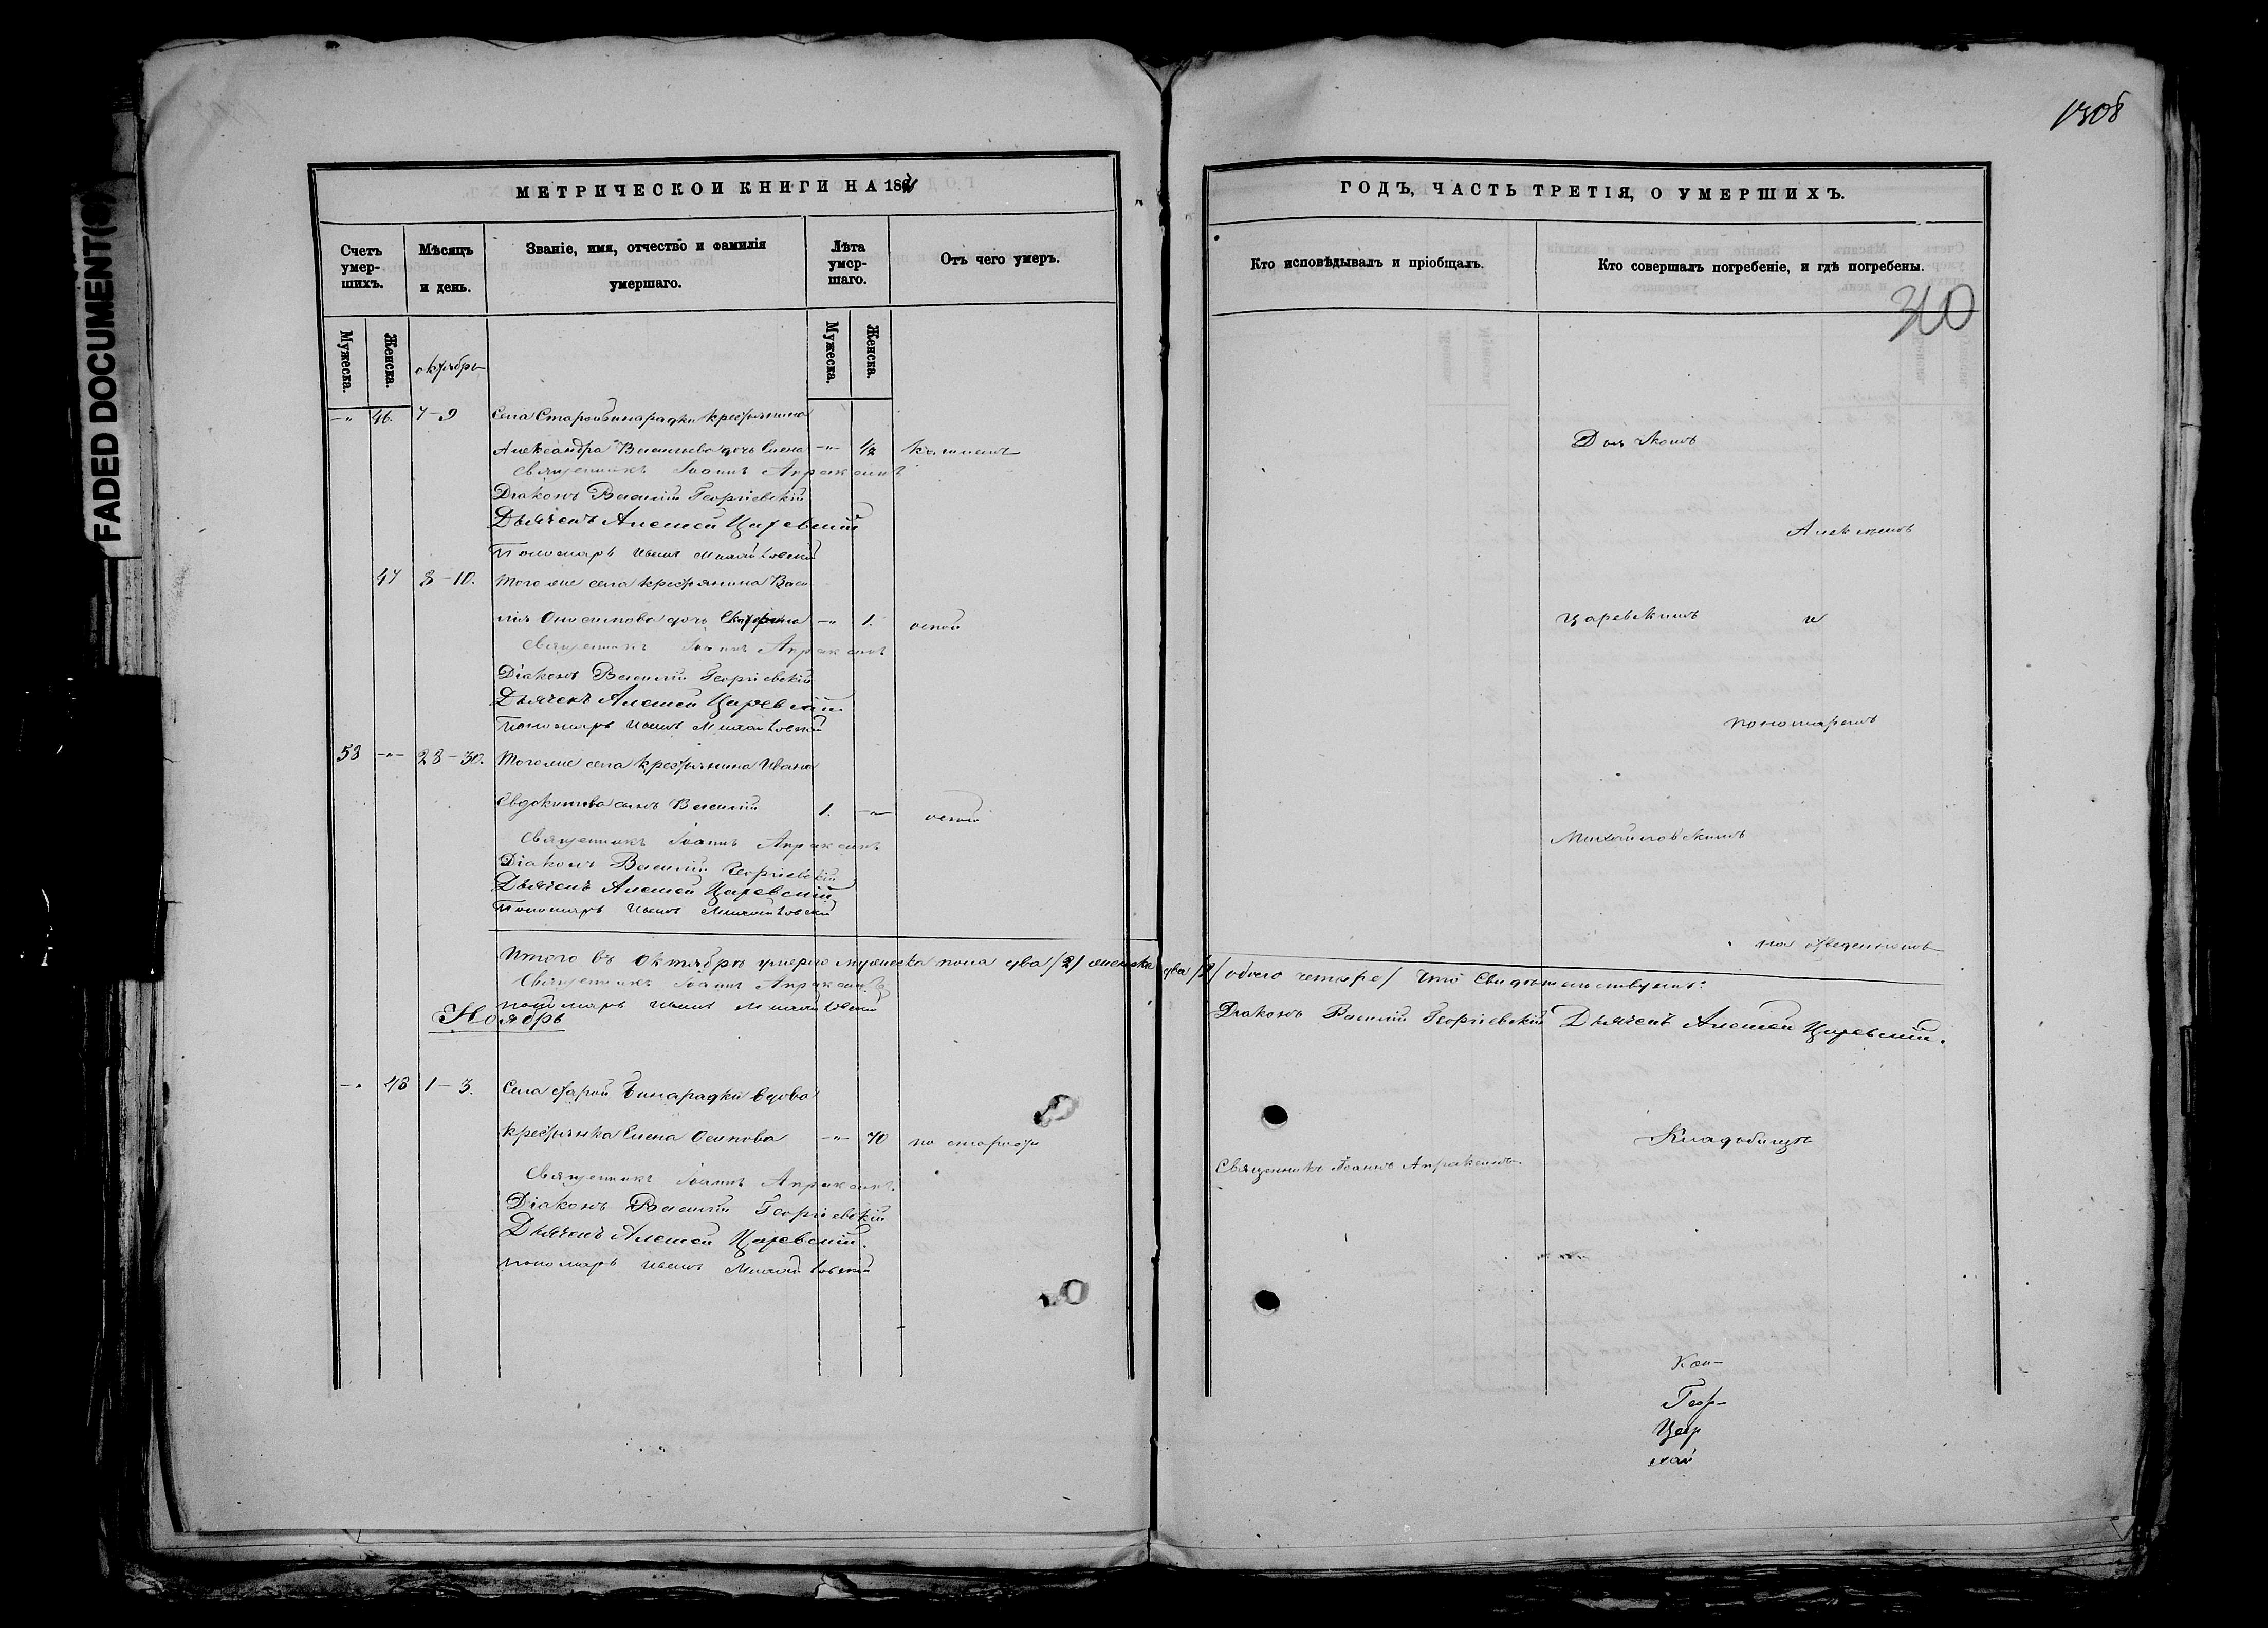 1308
FADED DOCUMENT(S)
МЕТРИЧЕСКОЙ КНИГИ НА 187
ГОДЪ, ЧАСТЬ ТРЕТІЯ, О УМЕРШИХЪ.
Счетъ умер-шихъ.
Мѣсяцъ и день.
Званіе, имя, отчество и фамилія умершаго.
Лѣта умер-шаго.
Отъ чего умеръ.
Кто исповѣдывалъ и пріобщалъ.
Кто совершалъ погребеніе, и гдѣ погребены.
310
Мужеска.
Женска.
октябрь
Мужеска.
Женска.
46. 7–9 Села Старой Бинарадки крестьянина
Александра Васильева дочь Елена 1/2
Священникъ Іоаннъ Апраксинъ
Діаконъ Василій Георгіевскій
Дьячекъ Алексей Царевскій
Пономарь Иванъ Михайловскій
47 8–10. Того же села крестьянина Васи
лія дочь Екатерина 1. оспой
Священникъ Іоаннъ Апраксинъ
Діаконъ Василій Георгіевскій
Дьячекъ Алексей Царевскій
Пономарь Иванъ Михайловскій
53 28–30. Того же села крестьянина Ивана
Евдокимова сынъ Василій 1. оспой
Священникъ Іоаннъ Апраксинъ
Діаконъ Василій Георгіевскій
Дьячекъ Алексей Царевскій
Пономарь Иванъ Михайловскій
Итого въ октябрѣ умерло мужеска пола два /2/ женска два /2/ обоего четыре/ Что свидѣтельствуютъ:
Священникъ Іоаннъ Апраксинъ
Пономарь Иванъ Михайловскій
Діаконъ Василій Георгіевскій Дьячекъ Алексей Царевскій.
Ноябрь
48 1–3. Села Старой Бинарадки вдова
крестьянка Елена Осипова 70 по старости
Священникъ Іоаннъ Апраксинъ.
Діаконъ Василій Георгіевскій
Дьячекъ Алексей Царевскій.
Пономарь Иванъ Михайловскій
Дьячкомъ
Алексѣемъ
Царевскимъ и
пономаремъ
Михайловскимъ
на отведенномъ
Кладбищѣ
Священникъ Іоаннъ Апраксинъ.
Геор-
Цар
хай